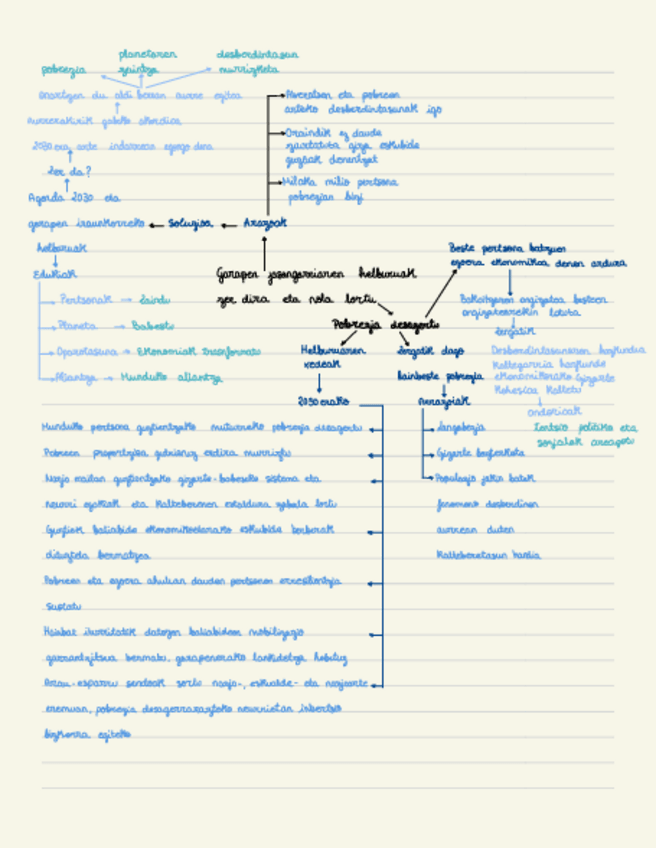 planetaren
zaintza
desberdintasun
murrizketa
pobrezia
onartzen du aldi berean aurre egitea
aurrekaririk gabeko akordioa
2030 era arte indarrean egongo dena
Zer da?
Agenda 2030 eta
garapen iraunkorreko
Soluzioa
Arazoak
Aberatsen eta pobreen
arteko desberdintasunak igo
Oraindik ez daude
giza eskubide
guztiak denentzat
Milaka milio pertsona
pobrezian bizi
helburuak
Edukiak
Pertsonak → Zaindu
Planeta → Babestu
Oparotasuna → Ekonomiak
Aliantza → Munduko aliantza
Garapen jasangarriaren helburuak
zer dira eta nola lortu
Pobrezia desagertu
Beste pertsona batzuen
egoera ekonomikoa denen ardura
Bakoitzaren ongizatea besteen
ongizatearekin lotuta
Zergatik
Desberdintasunaren hazkundea
Kaltegarria hazkunde
ekonomikorako Gizarte
Kohesioa Kaltetu
ondorioak
Tentsio politiko eta
sozialak areagotu
Helburuaren
xedeak
2030erako
Zergatik dago
hainbeste pobrezia
Arrazoiak
Langabezia
Gizarte bazterketa
Populazio jakin batek
fenomeno desberdinen
aurrean duten
Kalteberatasun handia
Munduko pertsona guztientzako muturreko pobrezia desagertu
Pobreen proportzioa gutxienez erdira murriztu
Nazio mailan guztientzako gizarte-babeseko sistema eta
neurri egokiak eta Kalteberenen estaldura zabala lortu
Guztiek baliabide ekonomikoetarako eskubide berberak
dituztela bermatzea
Pobreen eta egoera ahulean dauden pertsonen erresilientzia
sustatu
Hainbat iturritatik datozen baliabideen mobilizazio
garrantzitsua bermatu, garapenerako lankidetza hobetuz
Arau-esparru sendoak sortu nazio-, eskualde- eta nazioarte
eremuan, pobrezia desagerrarazteko neurrietan inbertsio
bizkorra egiteko